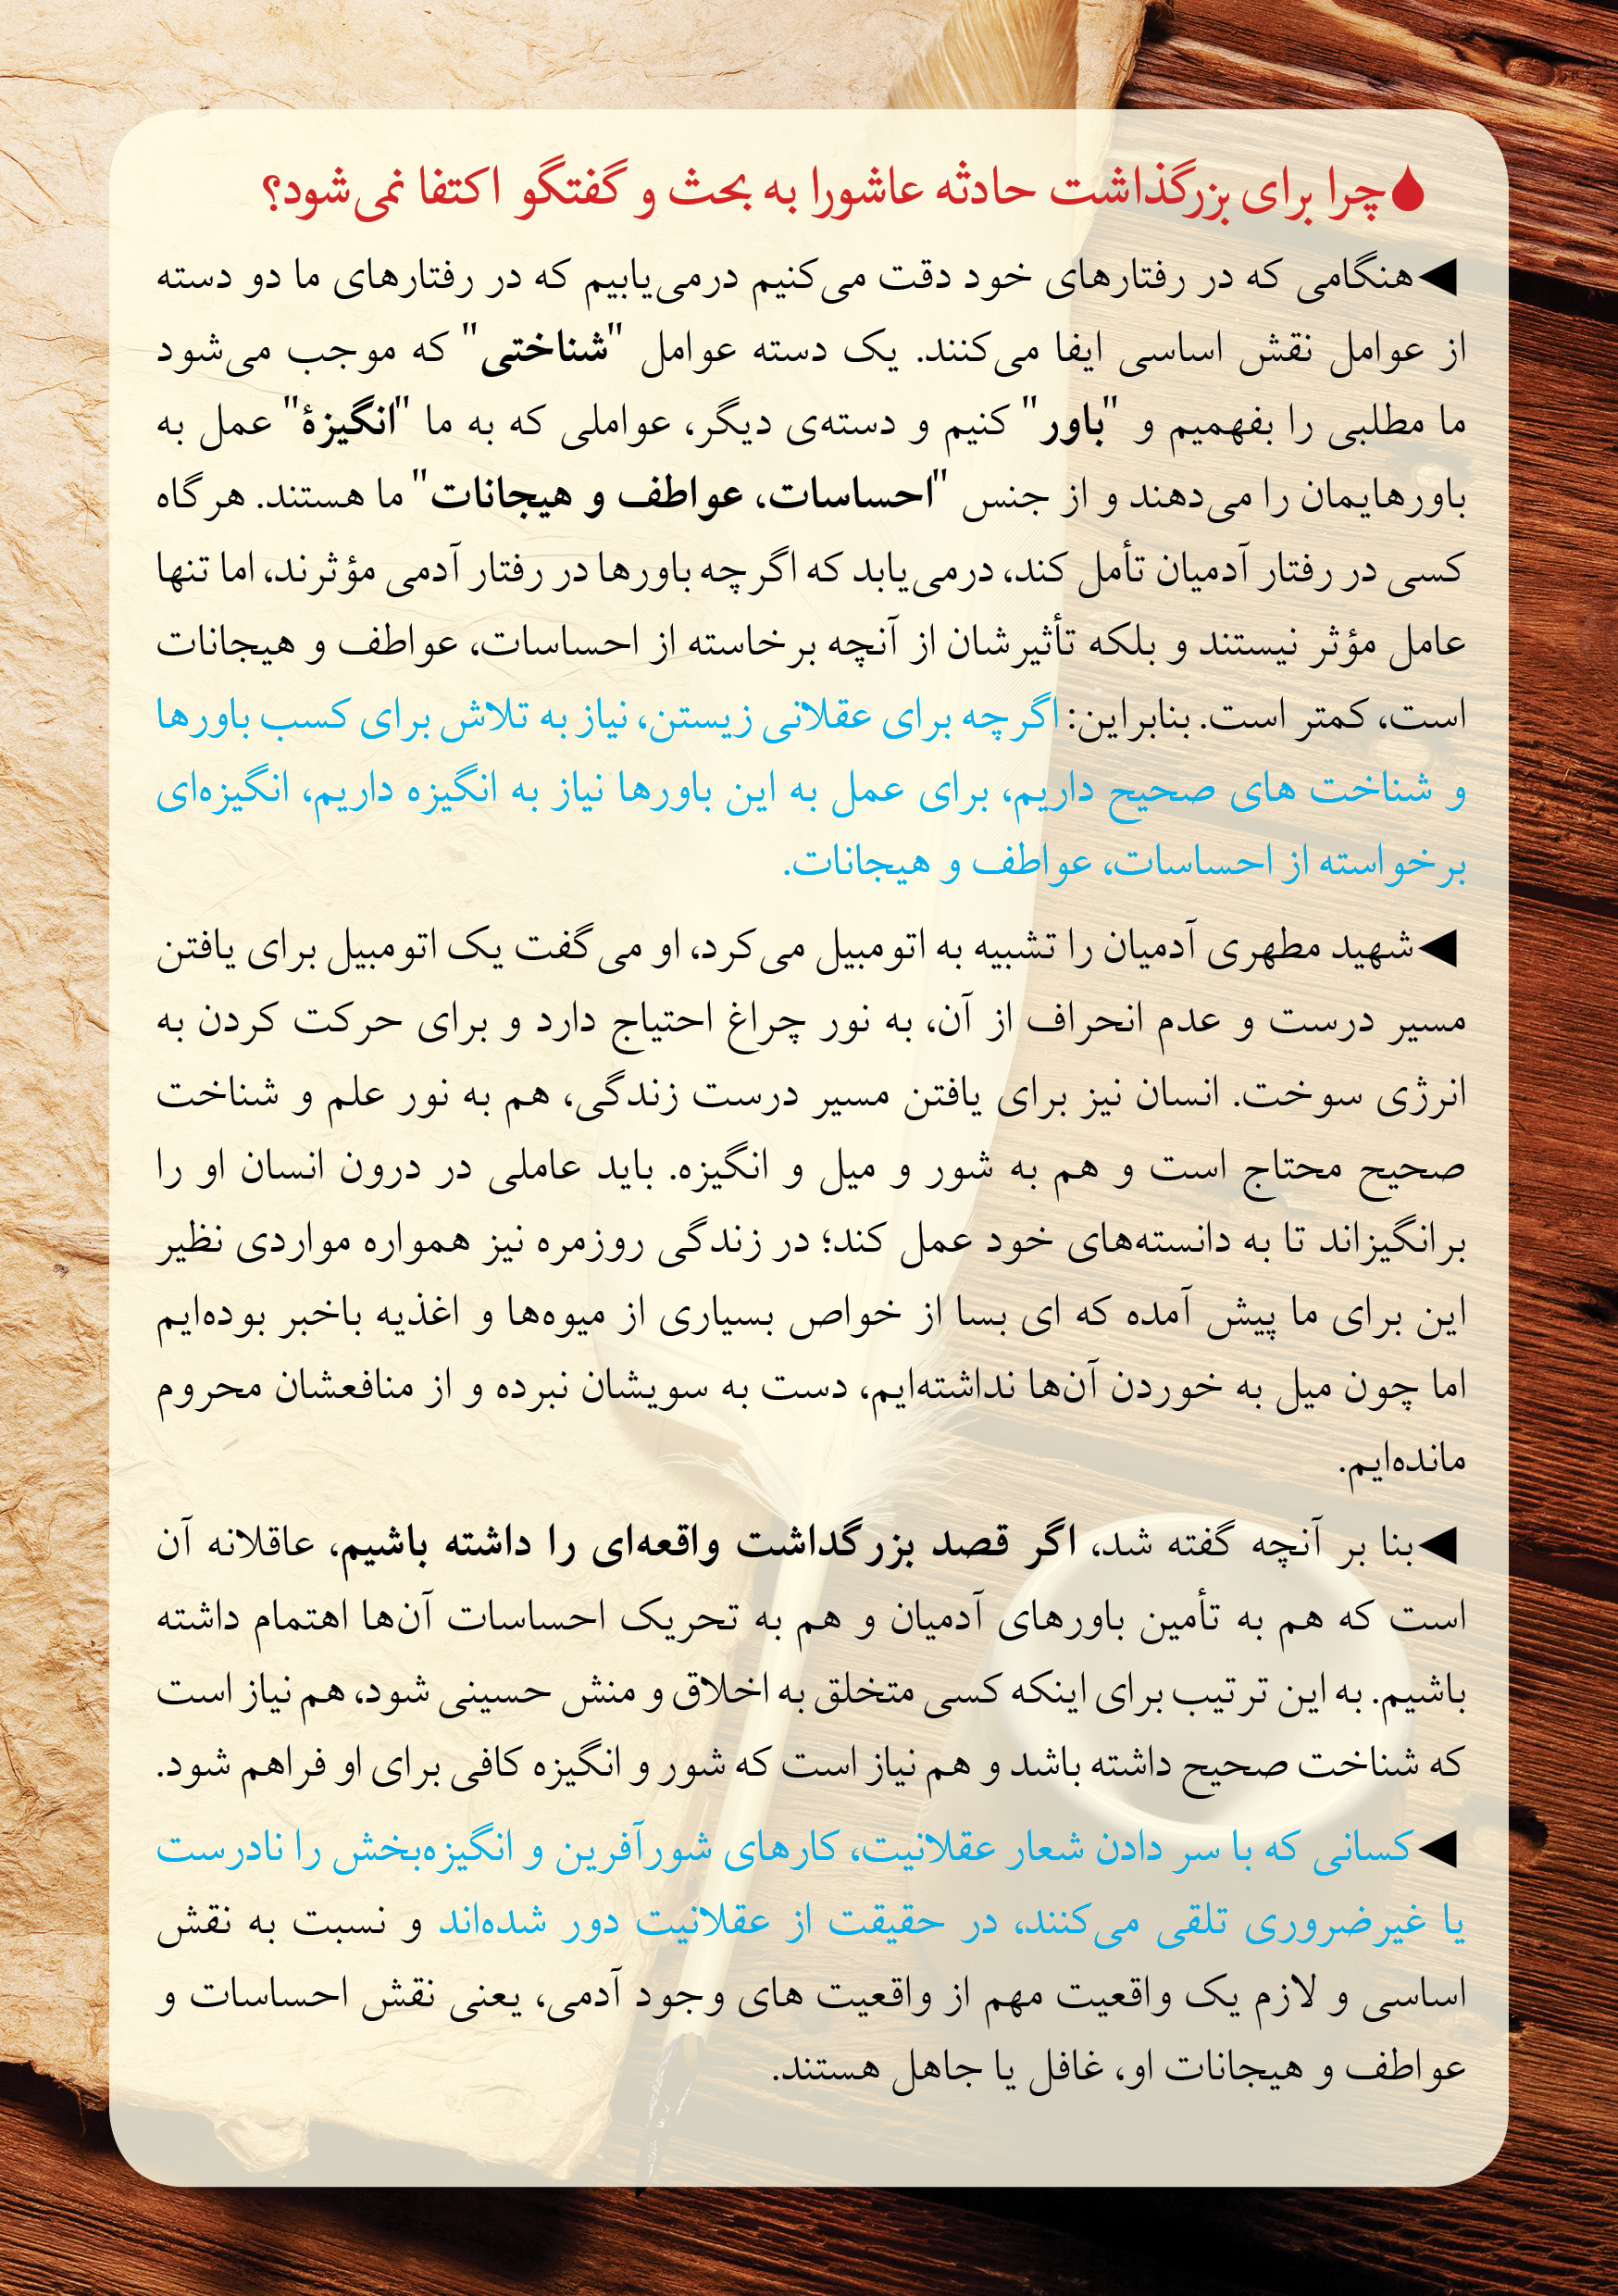 چرا برای بزرگذاشت حادثه عاشورا به بحث و گفتگو اکتفا نمی‌شود؟
هنگامی که در رفتارهای خود دقت می‌کنیم درمی‌یابیم که در رفتارهای ما دو دسته
از عوامل نقش اساسی ایفا می‌کنند. یک دسته عوامل "شناختی" که موجب می‌شود
ما مطلبی را بفهمیم و "باور" کنیم و دسته‌ی دیگر، عواملی که به ما "انگیزهٔ" عمل به
باورهایمان را می‌دهند و از جنس "احساسات، عواطف و هیجانات" ما هستند. هرگاه
کسی در رفتار آدمیان تأمل کند، درمی‌یابد که اگرچه باورها در رفتار آدمی مؤثرند، اما تنها
عامل مؤثر نیستند و بلکه تأثیرشان از آنچه برخاسته از احساسات، عواطف و هیجانات
است، کمتر است. بنابراین: اگرچه برای عقلانی زیستن، نیاز به تلاش برای کسب باورها
و شناخت های صحیح داریم، برای عمل به این باورها نیاز به انگیزه داریم، انگیزه‌ای
برخواسته از احساسات، عواطف و هیجانات.
شهید مطهری آدمیان را تشبیه به اتومبیل می‌کرد، او می‌گفت یک اتومبیل برای یافتن
مسیر درست و عدم انحراف از آن، به نور چراغ احتیاج دارد و برای حرکت کردن به
انرژی سوخت. انسان نیز برای یافتن مسیر درست زندگی، هم به نور علم و شناخت
صحیح محتاج است و هم به شور و میل و انگیزه. باید عاملی در درون انسان او را
برانگیزاند تا به دانسته‌های خود عمل کند؛ در زندگی روزمره نیز همواره مواردی نظیر
این برای ما پیش آمده که ای بسا از خواص بسیاری از میوه‌ها و اغذیه باخبر بوده‌ایم
اما چون میل به خوردن آن‌ها نداشته‌ایم، دست به سویشان نبرده و از منافعشان محروم
مانده‌ایم.
بنا بر آنچه گفته شد، اگر قصد بزرگداشت واقعه‌ای را داشته باشیم، عاقلانه آن
است که هم به تأمین باورهای آدمیان و هم به تحریک احساسات آن‌ها اهتمام داشته
باشیم. به این ترتیب برای اینکه کسی متخلق به اخلاق و منش حسینی شود، هم نیاز است
که شناخت صحیح داشته باشد و هم نیاز است که شور و انگیزه کافی برای او فراهم شود.
کسانی که با سر دادن شعار عقلانیت، کارهای شورآفرین و انگیزه‌بخش را نادرست
یا غیرضروری تلقی می‌کنند، در حقیقت از عقلانیت دور شده‌اند و نسبت به نقش
اساسی و لازم یک واقعیت مهم از واقعیت های وجود آدمی، یعنی نقش احساسات و
عواطف و هیجانات او، غافل یا جاهل هستند.